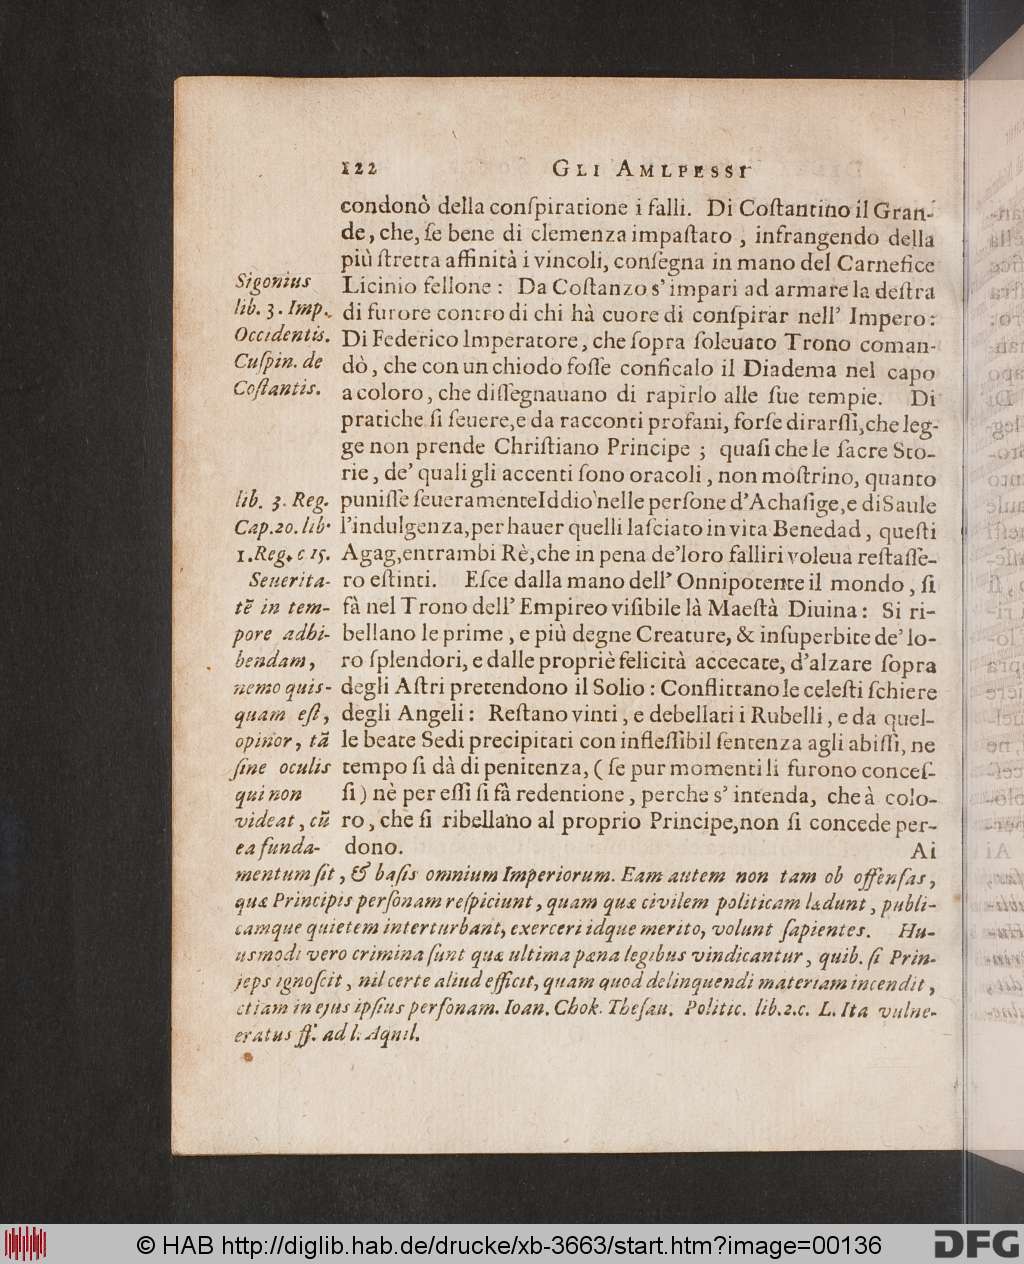 122 GLI AMLPESSI
condonò della conſpiratione i falli. Di Coſtantino il Gran-
de, che, ſe bene di clemenza impaſtato, infrangendo della
più ſtretta affinità i vincoli, conſegna in mano del Carnefice
Licinio fellone: Da Coſtanzo s'impari ad armare la deſtra
di furore contro di chi hà cuore di conſpirar nell' Impero:
Di Federico Imperatore, che ſopra ſoleuato Trono coman-
dò, che con un chiodo foſſe conficalo il Diadema nel capo
a coloro, che diſſegnauano di rapirlo alle ſue tempie. Di
pratiche ſi ſeuere, e da racconti profani, forſe dirarſſi, che leg-
ge non prende Chriſtiano Principe; quaſi che le ſacre Sto-
rie, de' quali gli accenti ſono oracoli, non moſtrino, quanto
puniſſe ſeueramente Iddio nelle perſone d'Achaſige, e di Saule
l'indulgenza, per hauer quelli laſciato in vita Benedad, queſti
Agag, entrambi Rè, che in pena de' loro falliri voleua reſtaſſe-
ro eſtinti. Eſce dalla mano dell' Onnipotente il mondo, ſi
fà nel Trono dell' Empireo viſibile là Maeſtà Diuina: Si ri-
bellano le prime, e più degne Creature, & inſuperbite de' lo-
ro ſplendori, e dalle propriè felicità accecate, d'alzare ſopra
degli Aſtri pretendono il Solio: Conflittano le celeſti ſchiere
degli Angeli: Reſtano vinti, e debellati i Rubelli, e da quel-
le beate Sedi precipitati con infleſſibil ſentenza agli abiſſi, ne
tempo ſi dà di penitenza, (ſe pur momenti li furono conceſ-
ſi) nè per eſſi ſi fà redentione, perche s'intenda, che à colo-
ro, che ſi ribellano al proprio Principe, non ſi concede per-
dono. Ai
Sigonius
lib. 3. Imp.
Occidentis.
Cuſpin. de
Coſtantis.
lib. 3. Reg.
Cap. 20. lib.
1. Reg. c 15.
Seuerita-
tē in tem-
pore adhi-
bendam,
nemo quis-
quam eſt,
opinor, tā
ſine oculis
qui non
videat, cū
ea funda-
mentum ſit, & baſis omnium Imperiorum. Eam autem non tam ob offenſas,
quæ Principis perſonam reſpiciunt, quam quæ civilem politicam lædunt, publi-
camque quietem interturbant, exerceri idque merito, volunt ſapientes. Hu-
usmodi vero crimina ſunt quæ ultima pæna legibus vindicantur, quib. ſi Prin-
jeps ignoſcit, nil certe aliud efficit, quam quod delinquendi materiam incendit,
etiam in ejus ipſius perſonam. Ioan. Chok. Theſau. Politic. lib. 2. c. L. Ita vulne-
eratus ff. ad l. Aquil.
© HAB http://diglib.hab.de/drucke/xb-3663/start.htm?image=00136
DFG